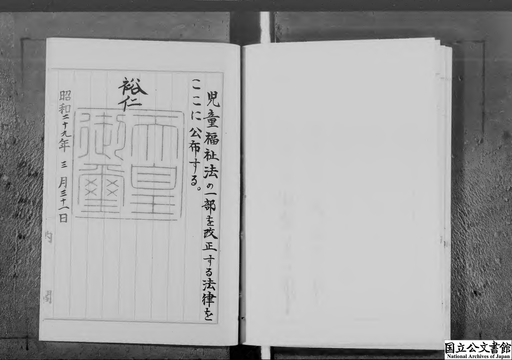 児童福祉法の一部を改正する法律を
ここに公布する。
裕仁
天皇
御璽
昭和二十九年三月三十一日
内閣
国立公文書館
National Archives of Japan